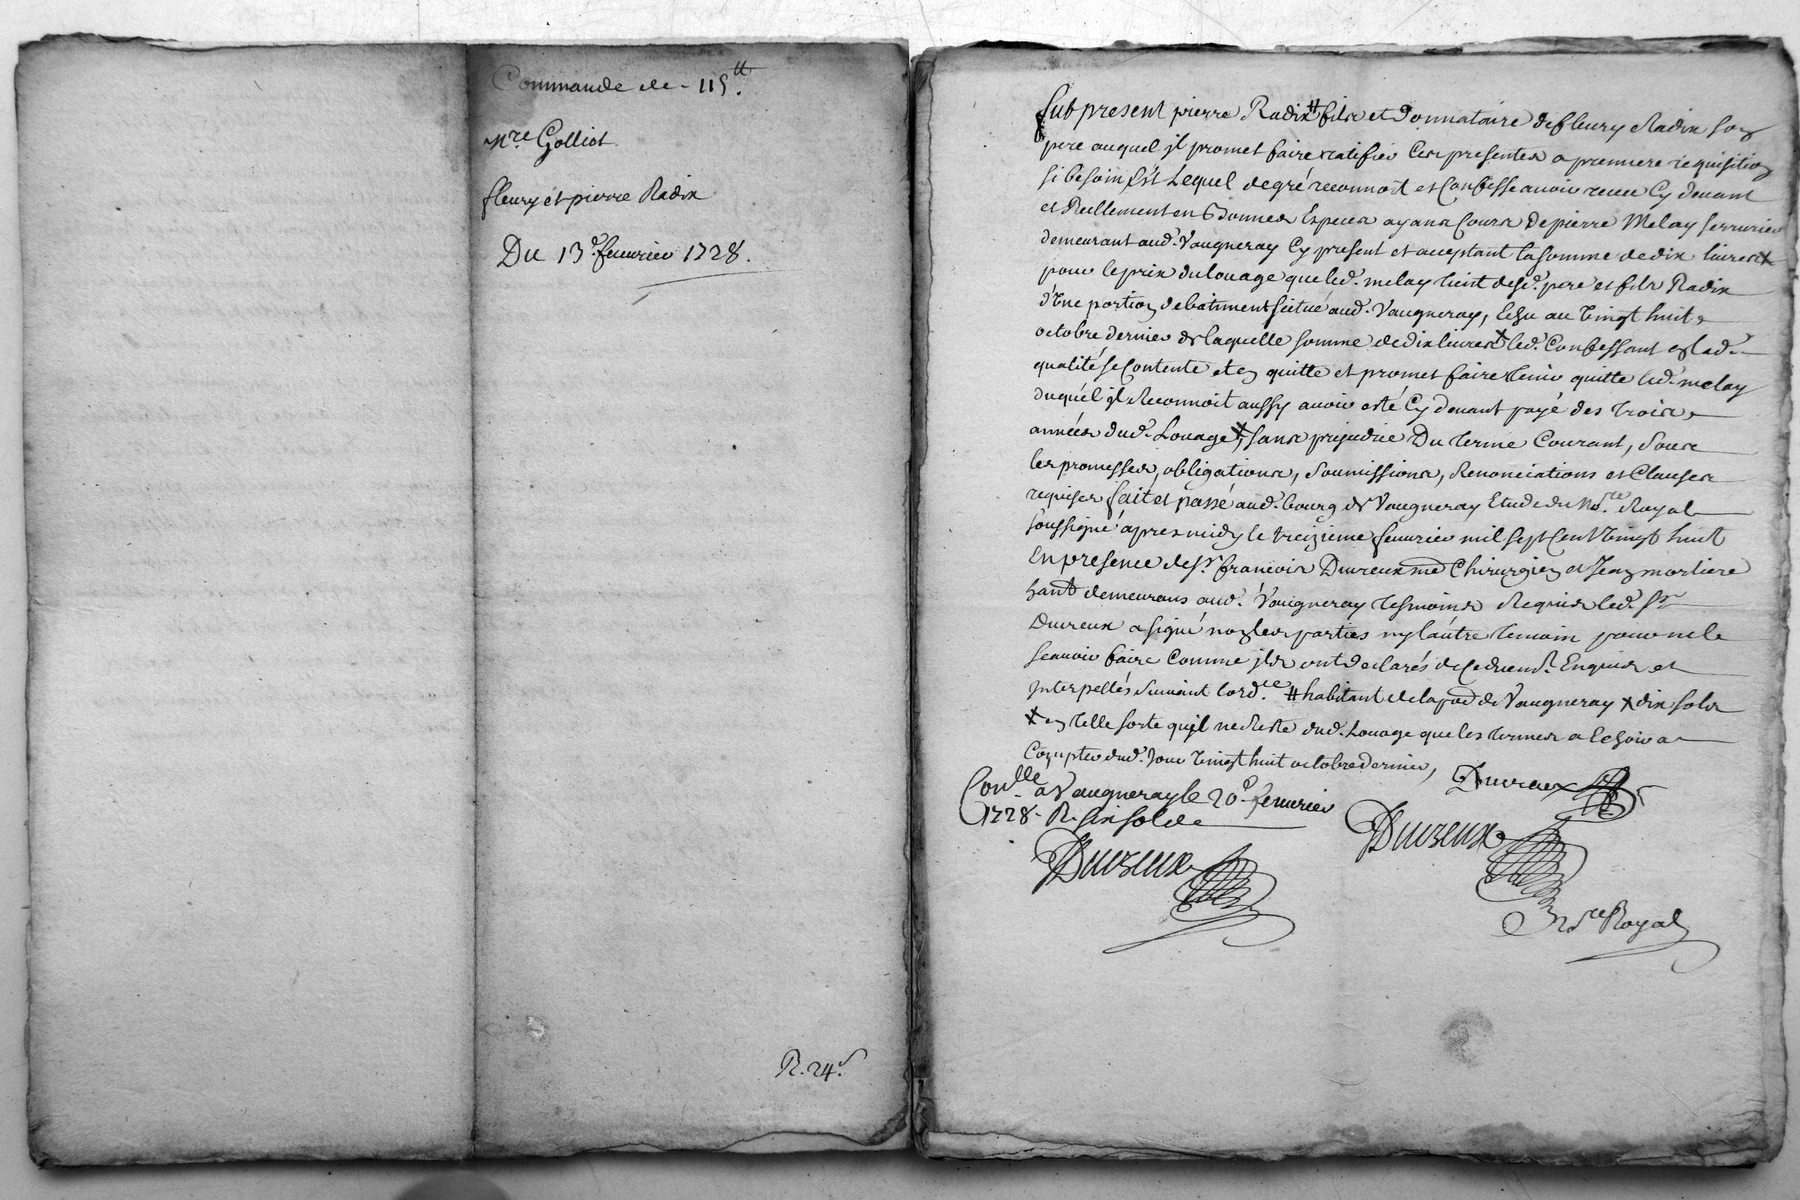 Commande de - 115 tt.
Mre. Golliot
fleury et pierre Radix
Du 13e. feuurier 1728.
R. 24s.
fut present pierre Radix # fils et donnataire de fleury Radix son
pere auquel jl promet faire ratiffier Ces presentes a premiere requisition
si besoin Est Lequel de gré reconnoit et Confesse auoir receu Cy deuant
et Reellement en Bonnes Especes ayans Cours De pierre Melay serrurier
demeurant aud. Vaugneray Cy present et acceptant la somme de dix liures X
pour le prix du louage que led. melay tient desd. pere et fils Radix
d'Vne portion de batiment scitué aud. Vaugneray, Echu au Vingt huit
octobre dernier de laquelle somme de dix liures X led. Confessant esd.
qualité se Contente et en quitte et promet faire tenir quitte led. melay
duquel jl Reconnoit aussy auoir esté Cy deuant payé des trois
années dud. Louage X, sans prejudice Du terme Courant, sous
les promesses, obligations, soumissions, Renonciations et Clauses
requises fait et passé aud. bourg de Vaugneray Etude du Nore. Royal
soussigné apres midy le treizieme feuurier mil sept Cent Vingt huit
En presence de sr. francois Duureux me Chirurgien et Jean mortiere
hant demeurans aud. Vaugneray tesmoins Requis led. sr
Duureux a signé non les parties ny l'autre temoin pour ne le
scauoir faire Comme jls ont declarés de Ce duem. Enquis et
Interpellés suiuant l'ordce. # habitant de la pse de Vaugneray X dix sols
X en telle sorte qu'jl ne Reste dud. Louage que les termes a Echoir a
Compter dud. Jour Vingt huit octobre dernier,
Duureux
Conlle. a Vaugneray le 20e. feuurier
1728. R. six sols
Duureux
Duureux
Nore Royal